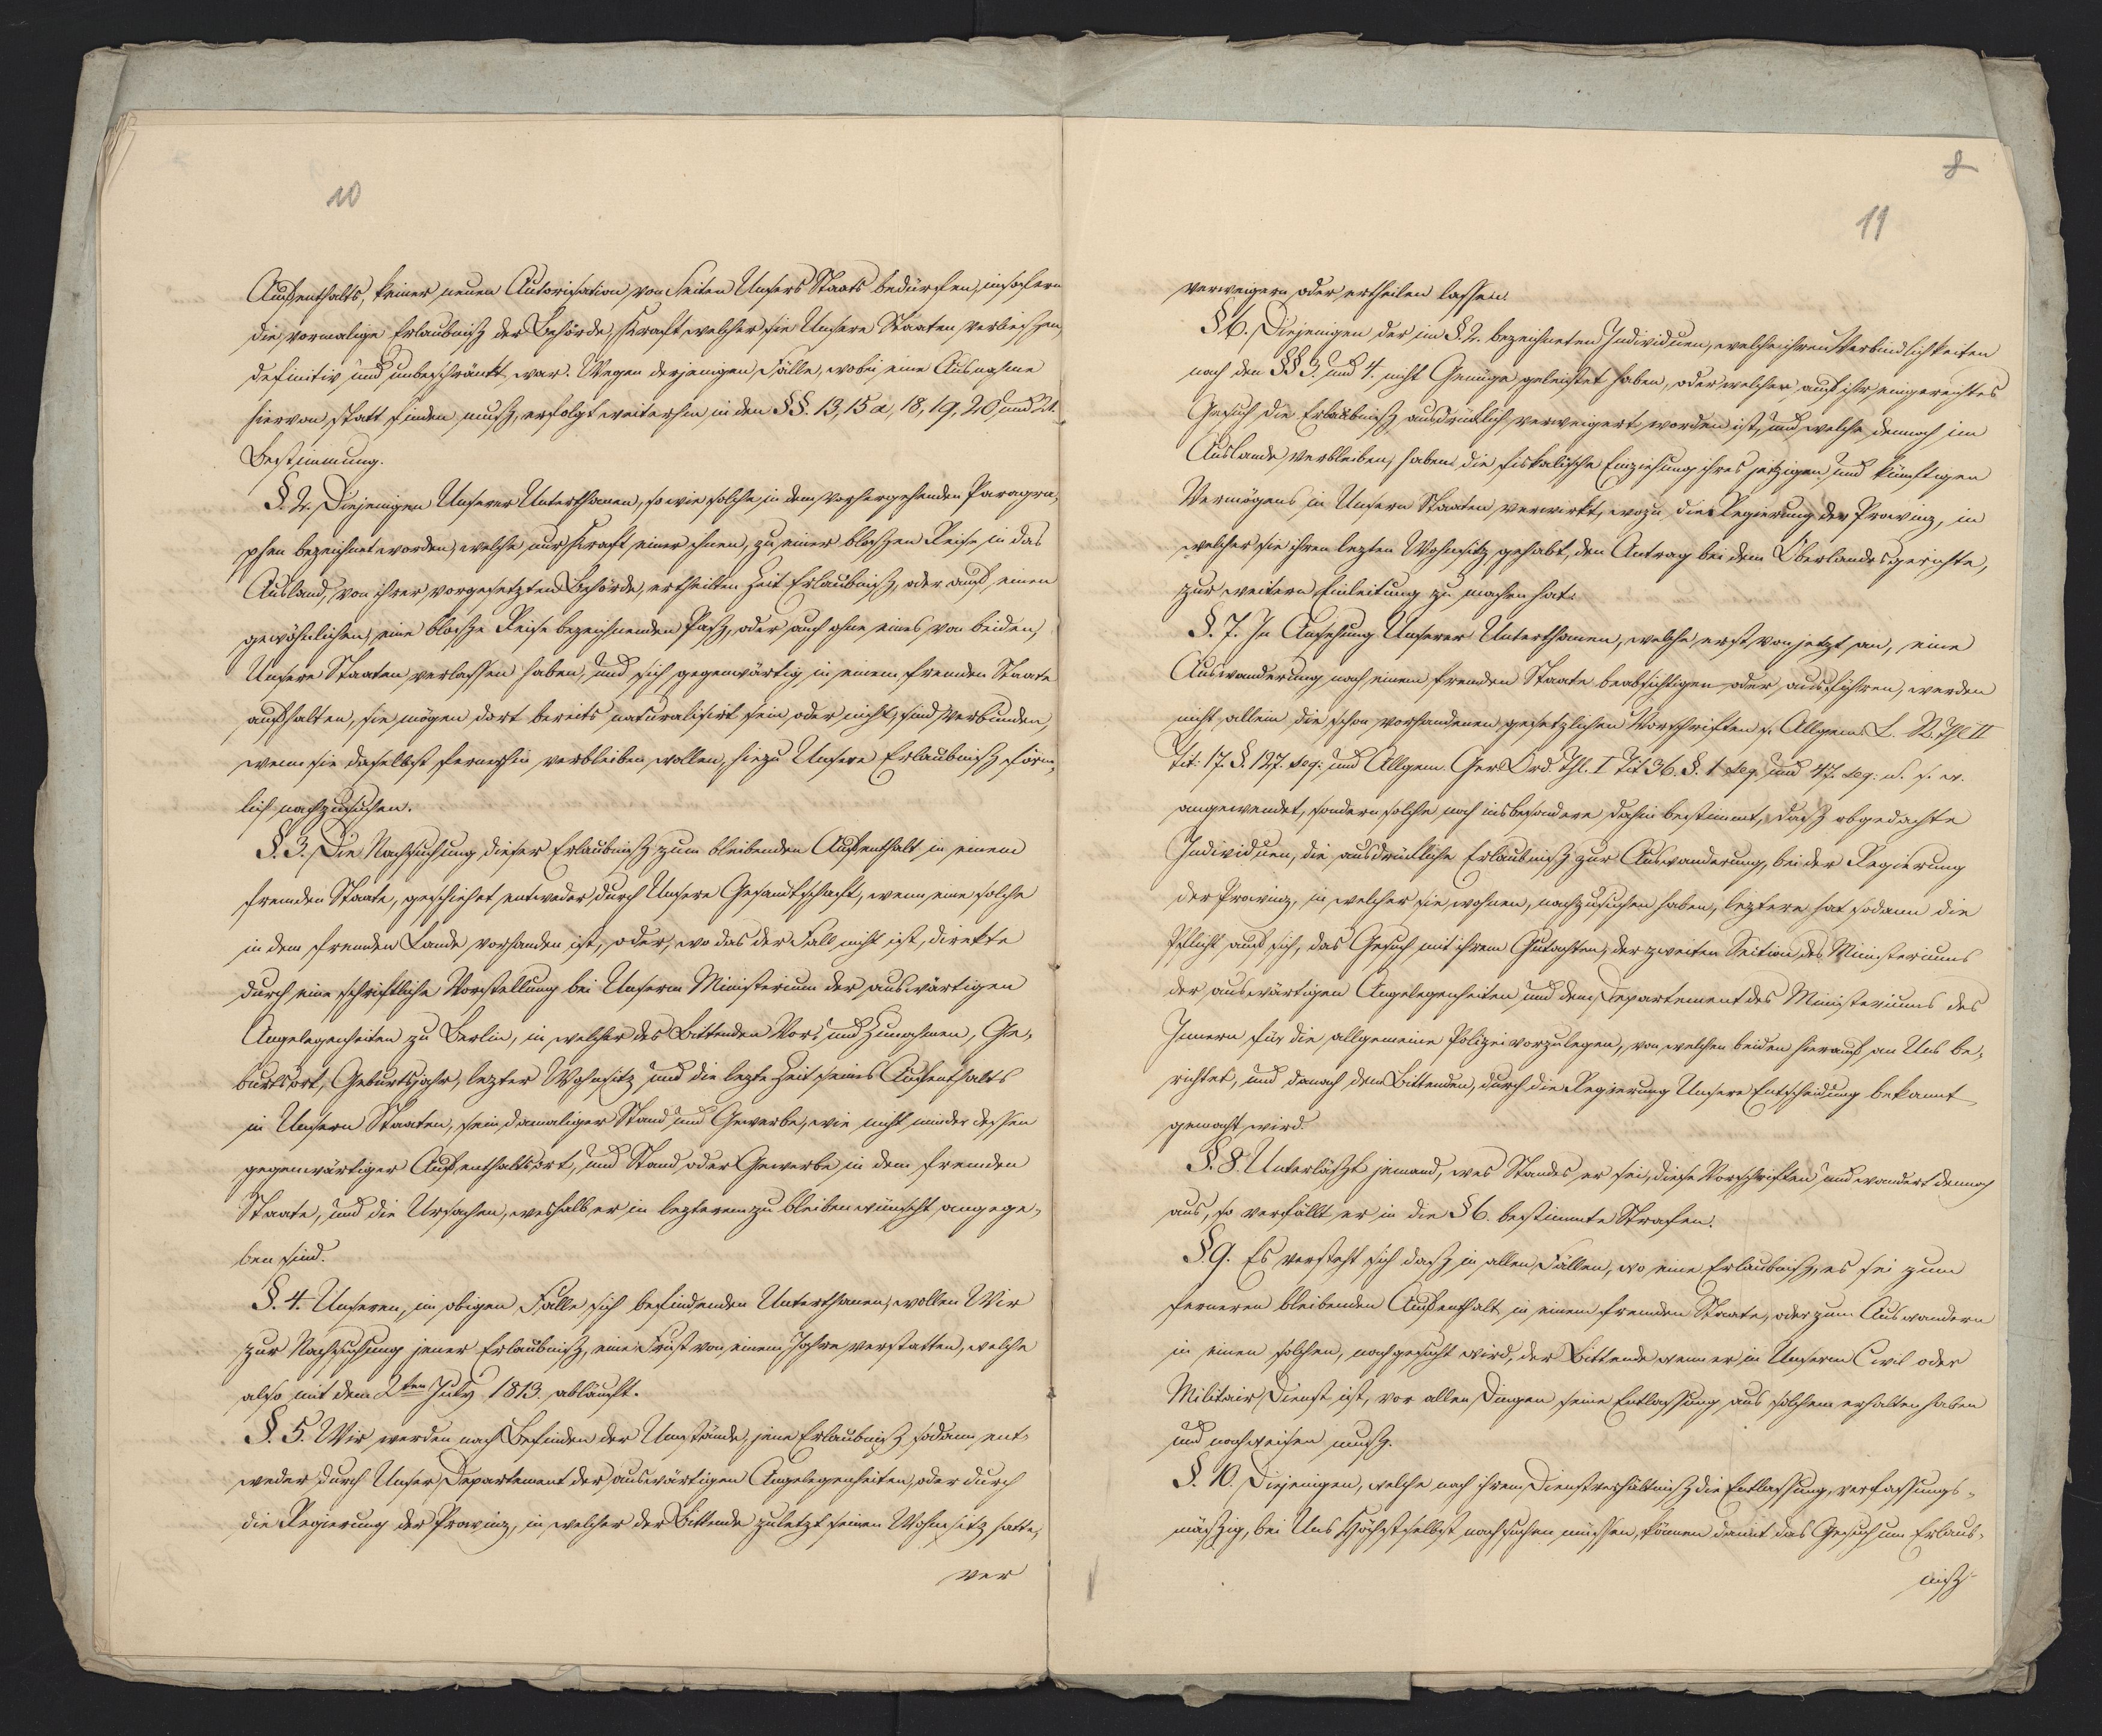 10
Aufenthalts, keiner neuen Autorisation von Seiten Unsers Staats bedürfen, insofern
die vormalige Erlaubniß der Behörde, Kraft welcher sie Unsere Staaten verließen,
definitiv und unbeschränkt war. Wegen derjenigen Fälle, wobei eine Ausnahme
hiervon statt finden muß, erfolgt weiterhin in den §§. 13, 15 a, 18, 19, 20 und 21.
Bestimmung.
§. 2. Diejenigen Unserer Unterthanen, so wie solche in dem vorhergehenden Paragra,
phen bezeichnet worden, welche nur Kraft einer ihnen, zu einer bloßen Reise in das
Ausland, von ihrer vorgesetzten Behörde, ertheilten Zeit Erlaubniß, oder auf einen
gewöhnlichen, eine bloße Reise bezeichnenden Paß, oder auch ohne eines von beiden,
Unsere Staaten verlassen haben, und sich gegenwärtig in einem fremden Staate
aufhalten, sie mögen dort bereits naturalisirt sein oder nicht, sind verbunden,
wenn sie daselbst fernerhin verbleiben wollen, hiezu Unsere Erlaubniß förm,
lich nachzusuchen.
§. 3. Die Nachsuchung dieser Erlaubniß zum bleibenden Aufenthalt in einem
fremden Staate, geschiehet entweder durch Unsere Gesandtschaft, wenn eine solche
in dem fremden Lande vorhanden ist, oder, wo das der Fall nicht ist, direkte
durch eine schriftliche Vorstellung bei Unserm Ministerium der auswärtigen
Angelegenheiten zu Berlin, in welcher des Bittenden Vor- und Zunahmen, Ge,
burtsort, Geburtsjahr, lezter Wohnsitz und die lezte Zeit seines Aufenthalts
in Unsern Staaten, sein damaliger Stand und Gewerbe, wie nicht minder dessen
gegenwärtiger Aufenthaltsort, und Stand oder Gewerbe in dem fremden
Staate, und die Ursachen, weshalb er in lezterem zu bleiben wünscht, angege,
ben sind.
§. 4. Unseren, im obigen Falle sich befindenden Unterthanen, wollen Wir
zur Nachsuchung jener Erlaubniß, eine Frist von einem Jahre verstatten, welche
also mit dem 2ten July 1813. abläuft.
§. 5. Wir werden nach Befinden der Umstände, jene Erlaubniß sodann ent,
weder durch Unser Departement der auswärtigen Angelegenheiten, oder durch
die Regierung der Provinz, in welcher der Bittende zuletzt seinen Wohnsitz hatte,
ver
8
11
verweigern oder ertheilen lassen.
§ 6. Diejenigen der im §. 2. bezeichneten Individuen, welche ihren Verbindlichkeiten
nach den §§ 3. und 4. nicht Genüge geleistet haben, oder welchen auf ihr eingereichtes
Gesuch die Erlaubniß ausdrücklich verweigert worden ist, und welche dennoch im
Auslande verbleiben, haben die fiskalische Einziehung ihres jetzigen und künftigen
Vermögens in Unsern Staaten verwirkt, wozu die Regierung der Provinz, in
welcher sie ihren lezten Wohnsitz gehabt, den Antrag bei dem Oberlandesgerichte,
zur weitern Einleitung zu machen hat.
§. 7. In Ansehung Unserer Unterthanen, welche erst von jetzt an, eine
Auswanderung nach einem fremden Staate beabsichtigen oder ausführen, werden
nicht allein die schon vorhandenen gesetzlichen Vorschriften s. Allgem. L. R. Thl II
Tit: 17. §. 127. seq: und Allgem. Ger. Ord. Thl. I Tit 36. §. 1 seq. und 47. seq: u. s. w.
angewendet, sondern solche noch insbesondere dahin bestimmt, daß obgedachte
Individuen, die ausdrückliche Erlaubniß zur Auswanderung, bei der Regierung
der Provinz, in welcher sie wohnen, nachzusuchen haben, leztere hat sodann die
Pflicht auf sich, das Gesuch mit ihrem Gutachten, der zweiten Section des Ministeriums
der auswärtigen Angelegenheiten und dem Departement des Ministeriums des
Innern für die allgemeine Polizei vorzulegen, von welchen beiden hierauf an Uns be,
richtet, und danach dem Bittenden, durch die Regierung Unsere Entscheidung bekannt
gemacht wird.
§. 8. Unterläßt jemand, wes Standes er sei, diese Vorschriften und wandert dennoch
aus, so verfällt er in die § 6. bestimmte Strafen.
§ 9. Es versteht sich daß in allen Fällen, wo eine Erlaubniß, es sei zum
ferneren bleibenden Aufenthalt in einem fremden Staate, oder zum Auswandern
in einen solchen, nachgesucht wird, der Bittende wenn er in Unserm Civil oder
Militair Dienst ist, vor allen Dingen seine Entlassung aus solchem erhalten haben
und nachweisen muß.
§. 10. Diejenigen, welche nach ihrem Dienstverhältniß die Entlassung, verfassungs-
mäßig, bei Uns Höchstselbst nachsuchen müssen, können damit das Gesuch um Erlaub,
niß